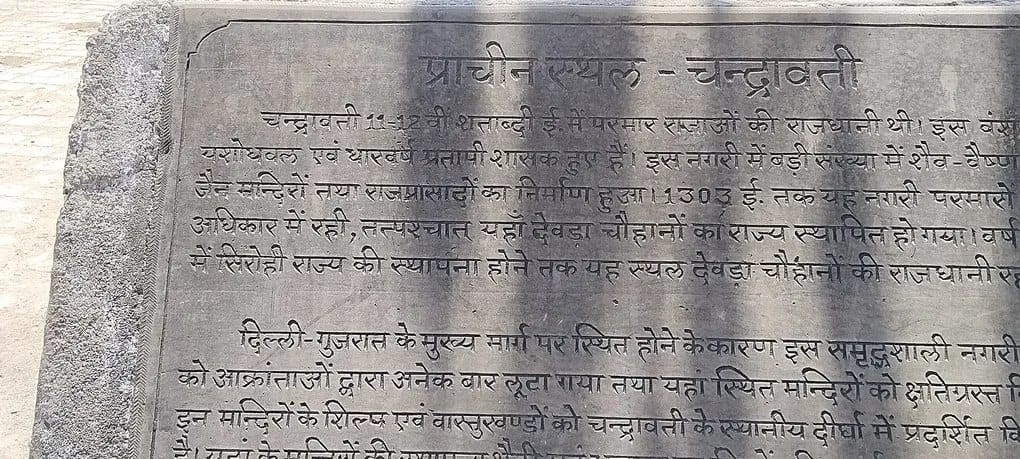 प्राचीन स्थल - चन्द्रावती
चन्द्रावती 11-12 वीं शताब्दी ई. में परमार राजाओं की राजधानी थी। इस वंश
यशोधवल एवं धारवर्ष प्रतापी शासक हुए हैं। इस नगरी में बड़ी संख्या में शैव-वैष्ण
जैन मन्दिरों तथा राजप्रासादों का निर्माण हुआ। 1303 ई. तक यह नगरी परमारों
अधिकार में रही, तत्पश्चात् यहाँ देवड़ा चौहानों का राज्य स्थापित हो गया। वर्ष
में सिरोही राज्य की स्थापना होने तक यह स्थल देवड़ा चौहानों की राजधानी
दिल्ली-गुजरात के मुख्य मार्ग पर स्थित होने के कारण इस समृद्धशाली नगरी
को आक्रांताओं द्वारा अनेक बार लूटा गया तथा यहां स्थित मन्दिरों को क्षतिग्रस्त
इन मन्दिरों के शिल्प एवं वास्तुखण्डों को चन्द्रावती के स्थानीय दीर्घा में प्रदर्शित